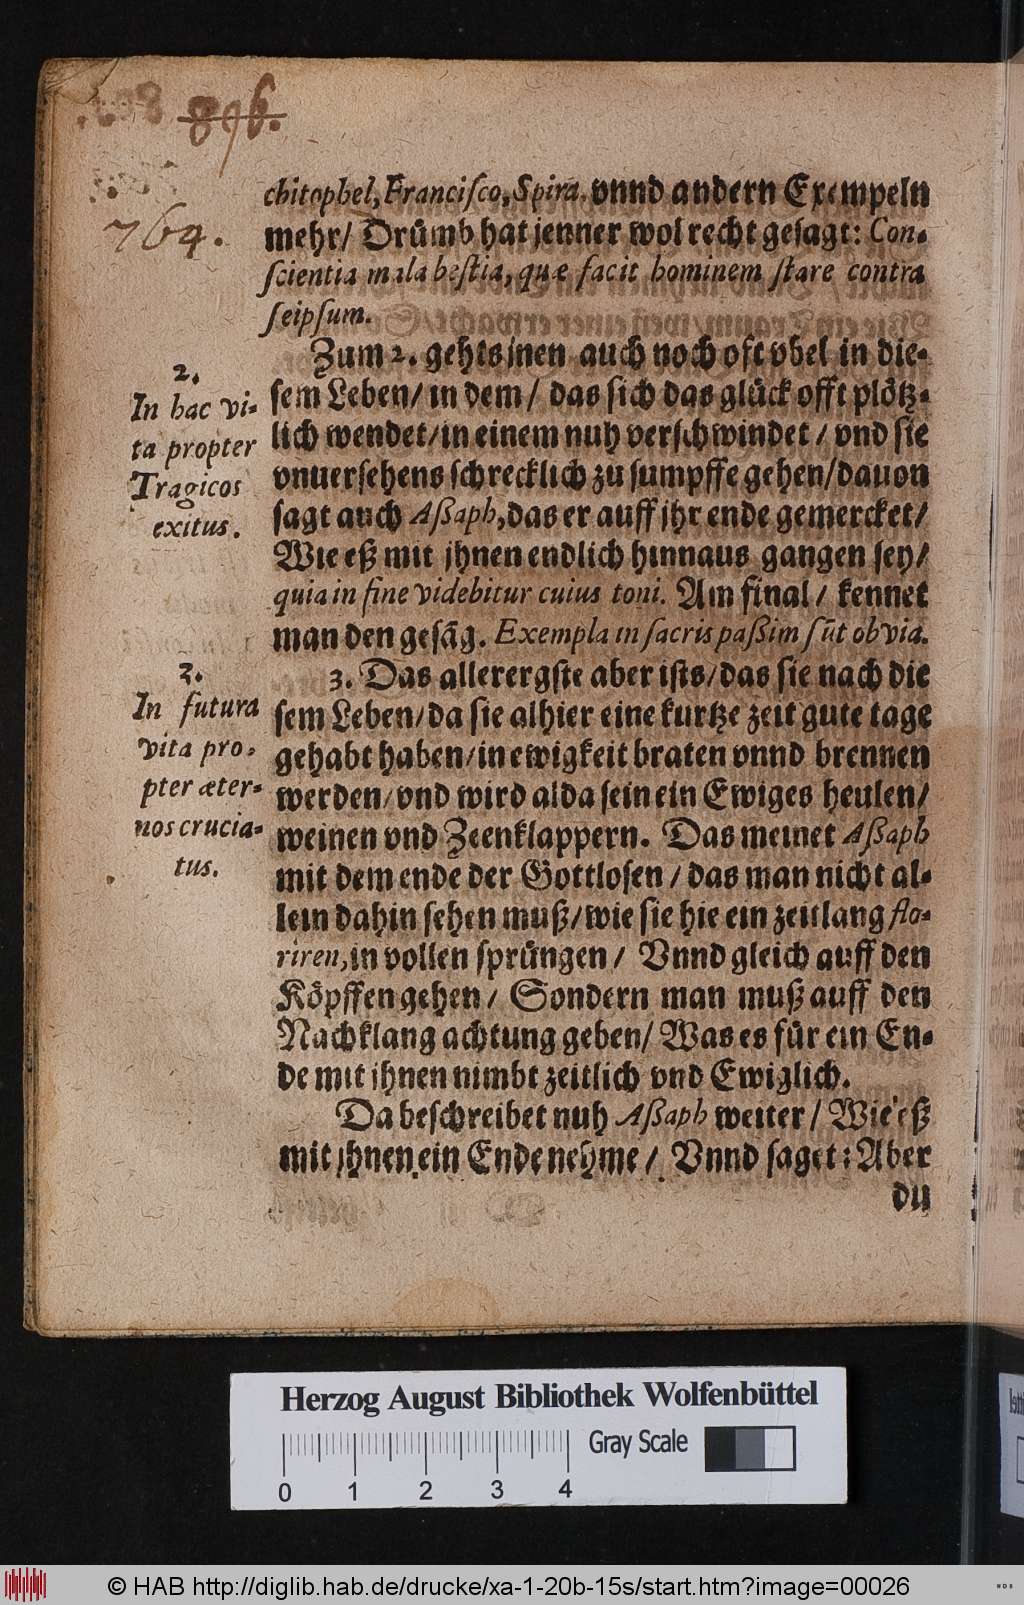 896.
764.
chitophel, Franciſco, Spira, vnnd andern Exempeln
mehr/ Drümb hat jenner wol recht geſagt: Con-
ſcientia mala beſtia, quæ facit hominem ſtare contra
ſeipſum.
Zum 2. gehts jnen auch noch oft vbel in die-
ſem Leben/ in dem/ das ſich das glück offt plötz-
lich wendet/ in einem nuh verſchwindet/ vnd ſie
vnuerſehens ſchrecklich zu ſumpffe gehen/ dauon
ſagt auch Aßaph, das er auff jhr ende gemercket/
Wie eß mit jhnen endlich hinnaus gangen ſey/
quia in fine videbitur cuius toni. Am final/ kennet
man den geſãg. Exempla in ſacris paßim ſũt obvia.
3. Das allerergſte aber iſts/ das ſie nach die
ſem Leben/ da ſie alhier eine kurtze zeit gute tage
gehabt haben/ in ewigkeit braten vnnd brennen
werden/ vnd wird alda ſein ein Ewiges heulen/
weinen vnd Zeenklappern. Das meinet Aßaph
mit dem ende der Gottloſen/ das man nicht al-
lein dahin ſehen muß/ wie ſie hie ein zeitlang flo-
riren, in vollen ſprüngen/ Vnnd gleich auff den
Köpffen gehen/ Sondern man muß auff den
Nachklang achtung geben/ Was es für ein En-
de mit jhnen nimbt zeitlich vnd Ewiglich.
Da beſchreibet nuh Aßaph weiter/ Wie eß
mit jhnen ein Ende nehme/ Vnnd ſaget: Aber
du
2.
In hac vi-
ta propter
Tragicos
exitus.
3.
In futura
vita pro-
pter æter-
nos crucia-
tus.
Herzog August Bibliothek Wolfenbüttel
0 1 2 3 4 Gray Scale
© HAB http://diglib.hab.de/drucke/xa-1-20b-15s/start.htm?image=00026